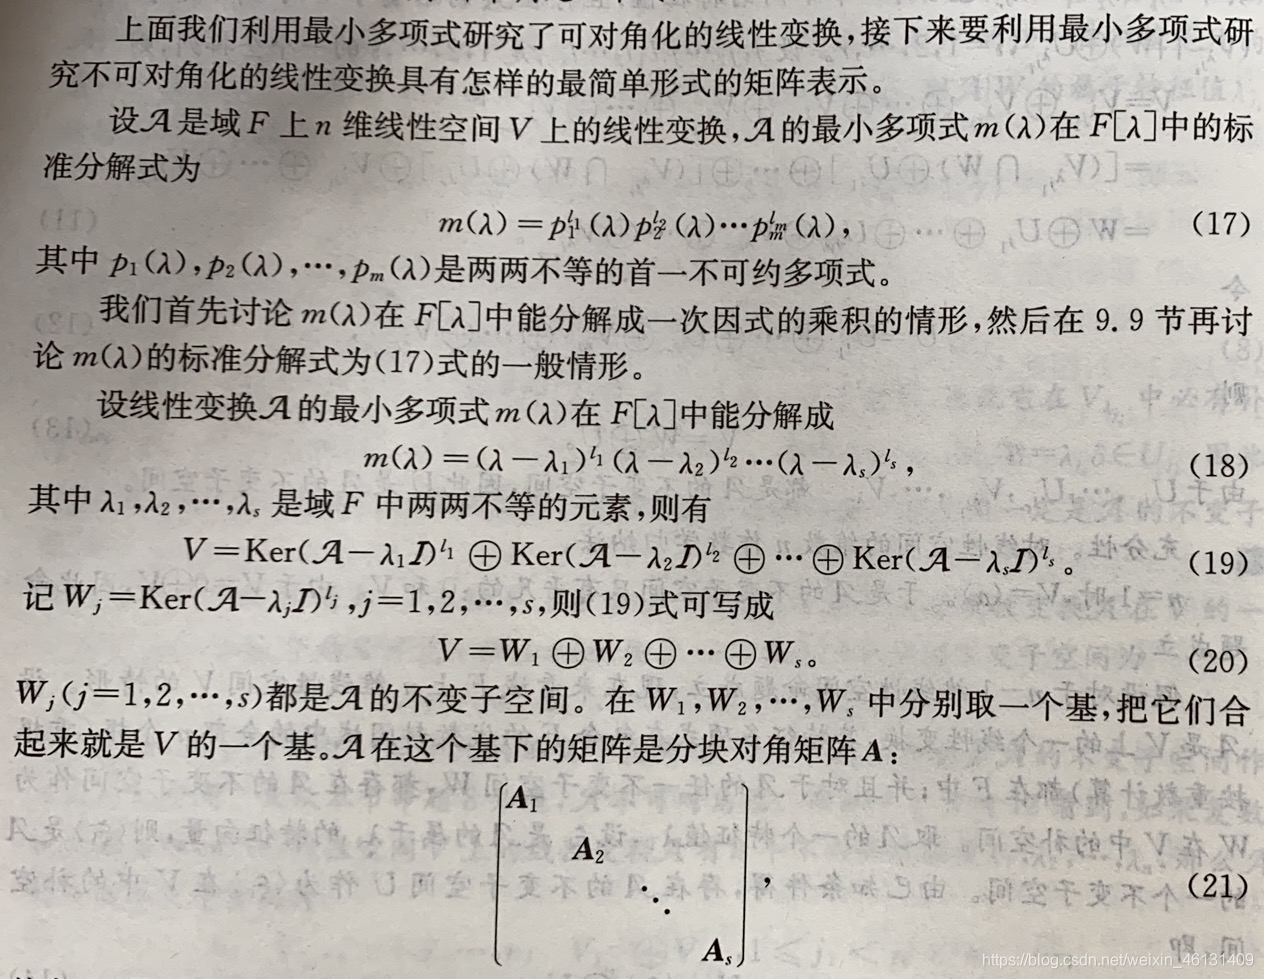 上面我们利用最小多项式研究了可对角化的线性变换,接下来要利用最小多项式研
究不可对角化的线性变换具有怎样的最简单形式的矩阵表示。
设𝒜是域 F 上 n 维线性空间 V 上的线性变换,𝒜的最小多项式 m(λ)在 F[λ]中的标
准分解式为
m(λ) = p₁^{l₁}(λ) p₂^{l₂}(λ)⋯pₘ^{lₘ}(λ), (17)
其中 p₁(λ),p₂(λ),⋯,pₘ(λ)是两两不等的首一不可约多项式。
我们首先讨论 m(λ)在 F[λ]中能分解成一次因式的乘积的情形,然后在 9.9 节再讨
论 m(λ)的标准分解式为(17)式的一般情形。
设线性变换𝒜的最小多项式 m(λ)在 F[λ]中能分解成
m(λ) = (λ−λ₁)^{l₁}(λ−λ₂)^{l₂}⋯(λ−λₛ)^{lₛ}, (18)
其中 λ₁,λ₂,⋯,λₛ 是域 F 中两两不等的元素,则有
V=Ker(𝒜−λ₁ℐ)^{l₁} ⊕ Ker(𝒜−λ₂ℐ)^{l₂} ⊕ ⋯ ⊕ Ker(𝒜−λₛℐ)^{lₛ}。 (19)
记 Wⱼ=Ker(𝒜−λⱼℐ)^{lⱼ},j=1,2,⋯,s,则(19)式可写成
V=W₁ ⊕ W₂ ⊕ ⋯ ⊕ Wₛ。 (20)
Wⱼ(j=1,2,⋯,s)都是𝒜的不变子空间。在 W₁,W₂,⋯,Wₛ 中分别取一个基,把它们合
起来就是 V 的一个基。𝒜在这个基下的矩阵是分块对角矩阵 A:
A₁
A₂
⋱ , (21)
Aₛ
https://blog.csdn.net/weixin_46131409